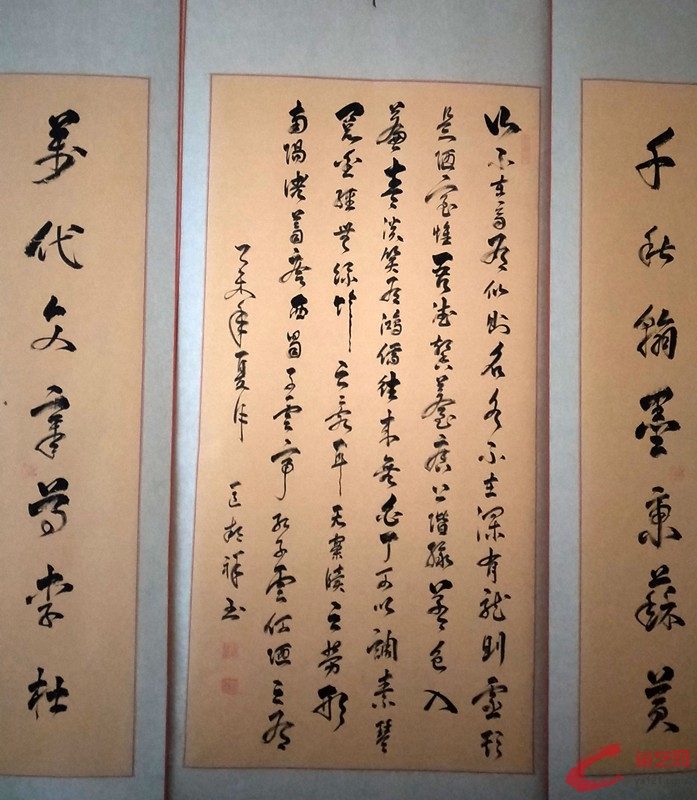 千秋翰墨秉蘇黄
山不在高有仙則名水不在深有龍則靈斯
是陋室惟吾德馨苔痕上階緑草色入
簾青談笑有鴻儒往來無白丁可以調素琴
閲金經無絲竹之亂耳无案牘之勞形
南陽諸葛廬西蜀子雲亭孔子雲何陋之有
乙未年夏 祥書
萬代文章尊李杜